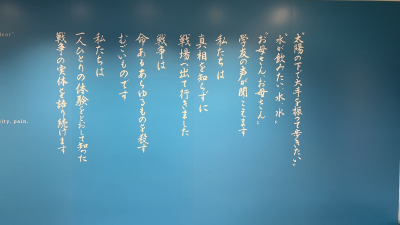 "太陽の下で大手を振って歩きたい"
"水が飲みたい、水、水"
"お母さん、お母さん"
学友の声が聞こえます
私たちは
真相を知らずに
戦場へ出て行きました
戦争は
命あるあらゆるものを殺す
むごいものです
私たちは
一人ひとりの体験をとおして知った
戦争の実体を語り続けます
ity, pain.